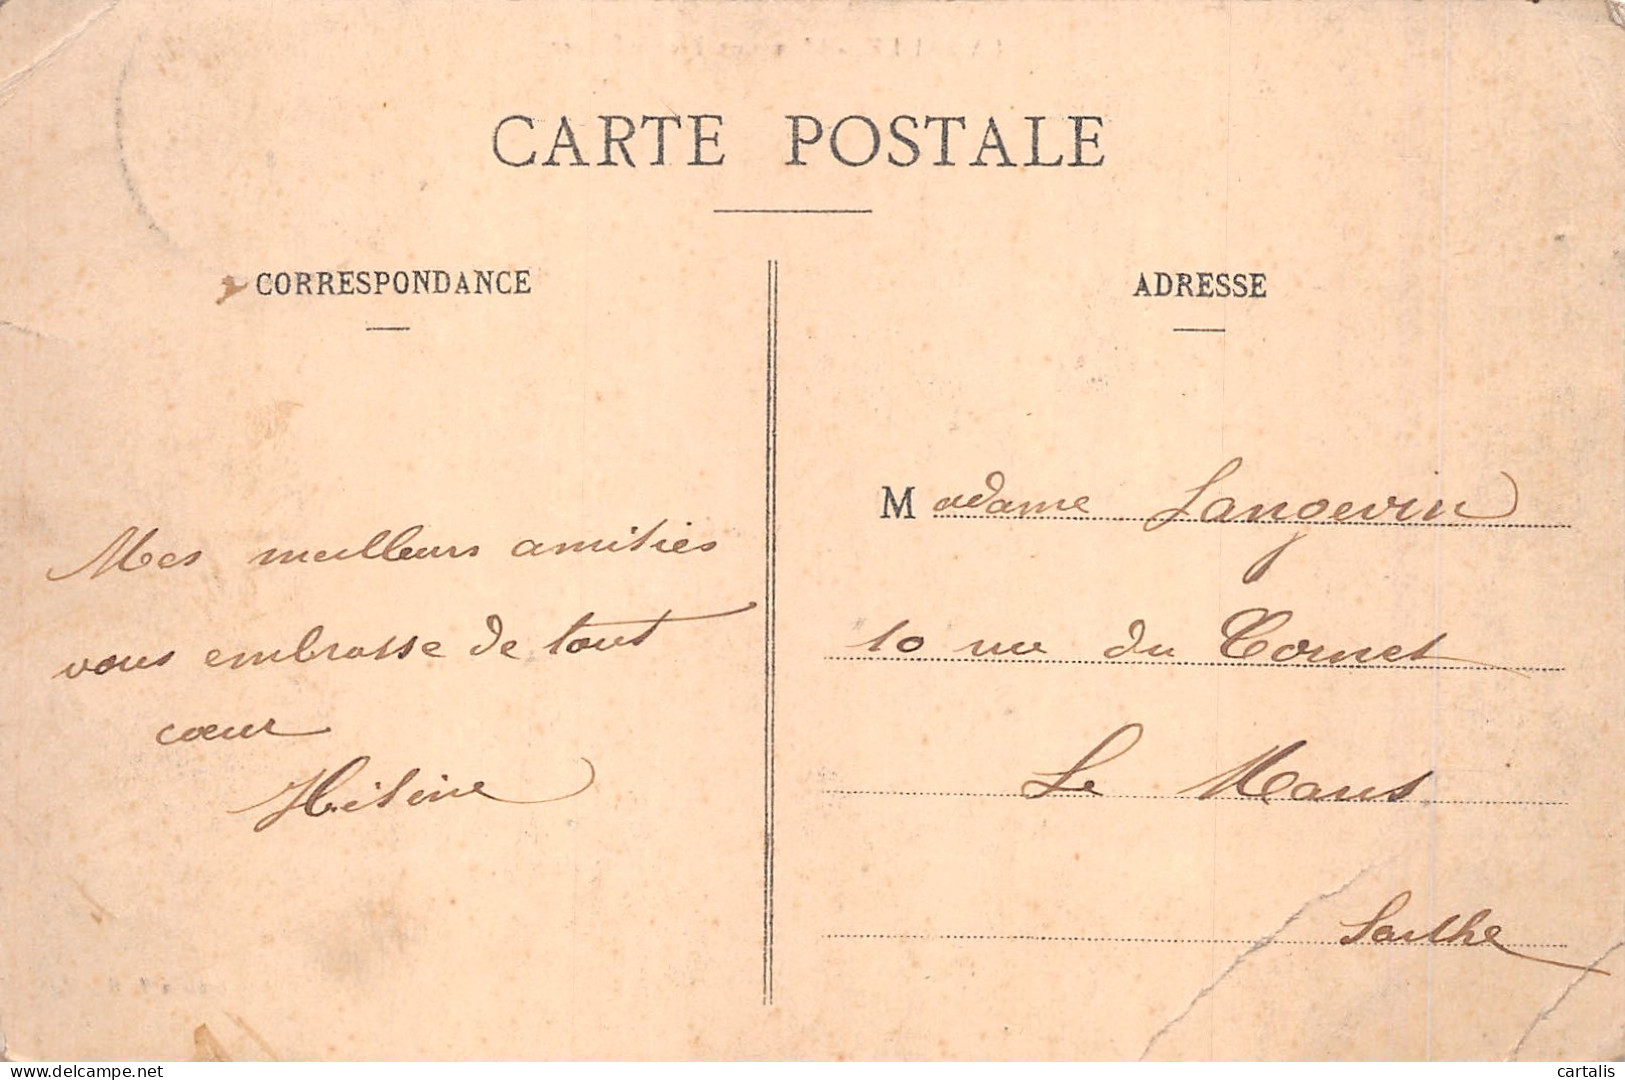 CARTE POSTALE
CORRESPONDANCE
Mes meilleurs amitiés
vous embrasse de tout
cœur
Hélène
ADRESSE
Madame Langevin
10 rue du Cornet
Le Mans
Sarthe
delcampe.net
cartalis